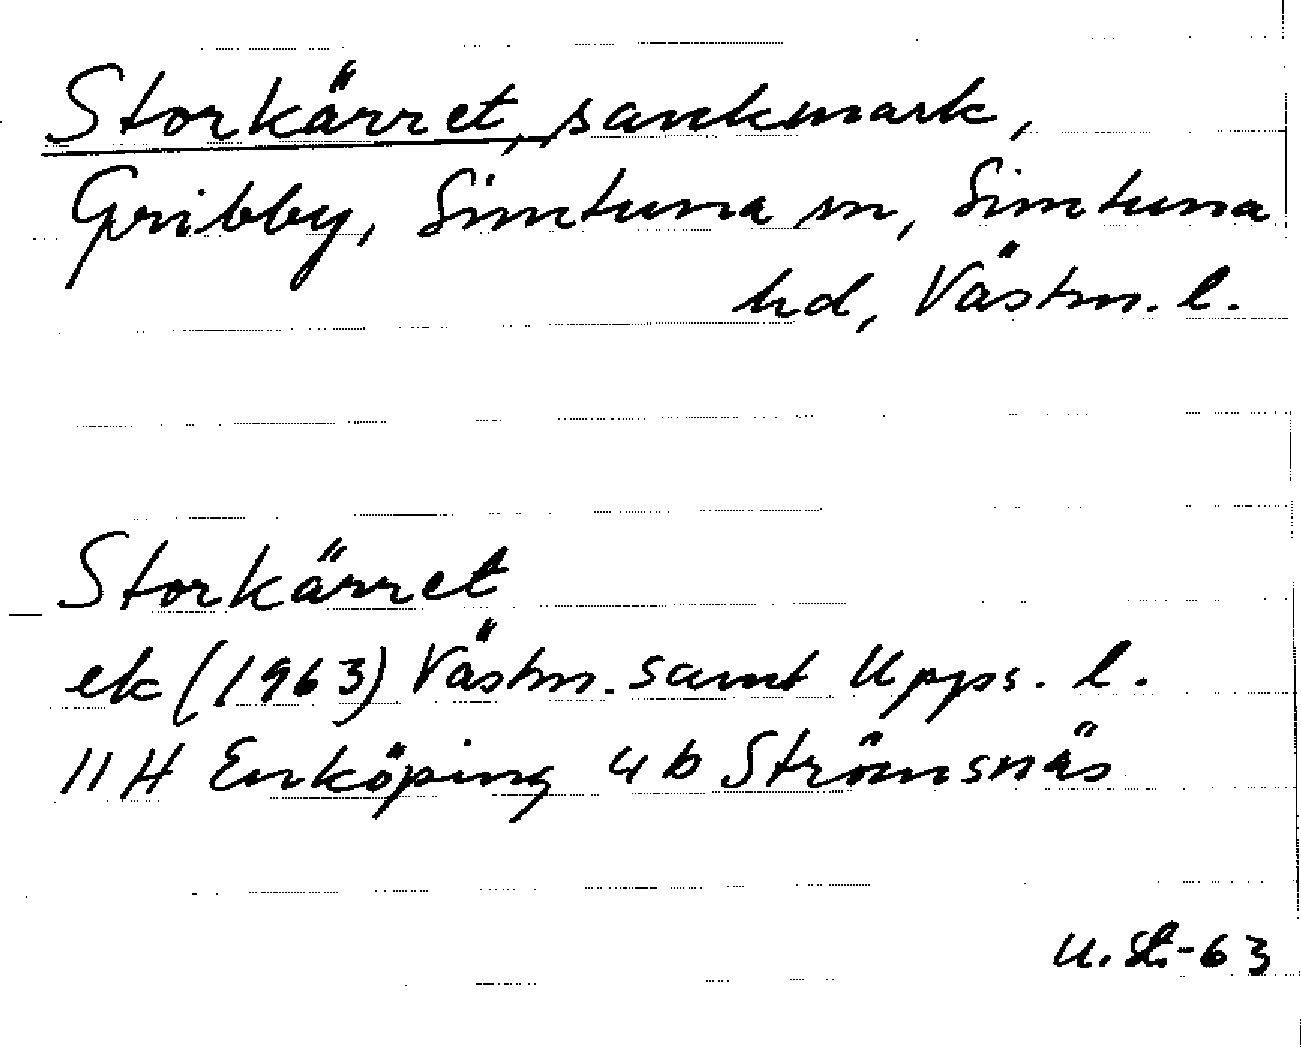 Storkärret, sankmark,
Gribby, Simtuna sn, Simtuna
hd, Västm. l.
Storkärret
ek (1963) Västm. samt Upps. l.
11 H Enköping 4 b Strömsnäs
U. St.-63